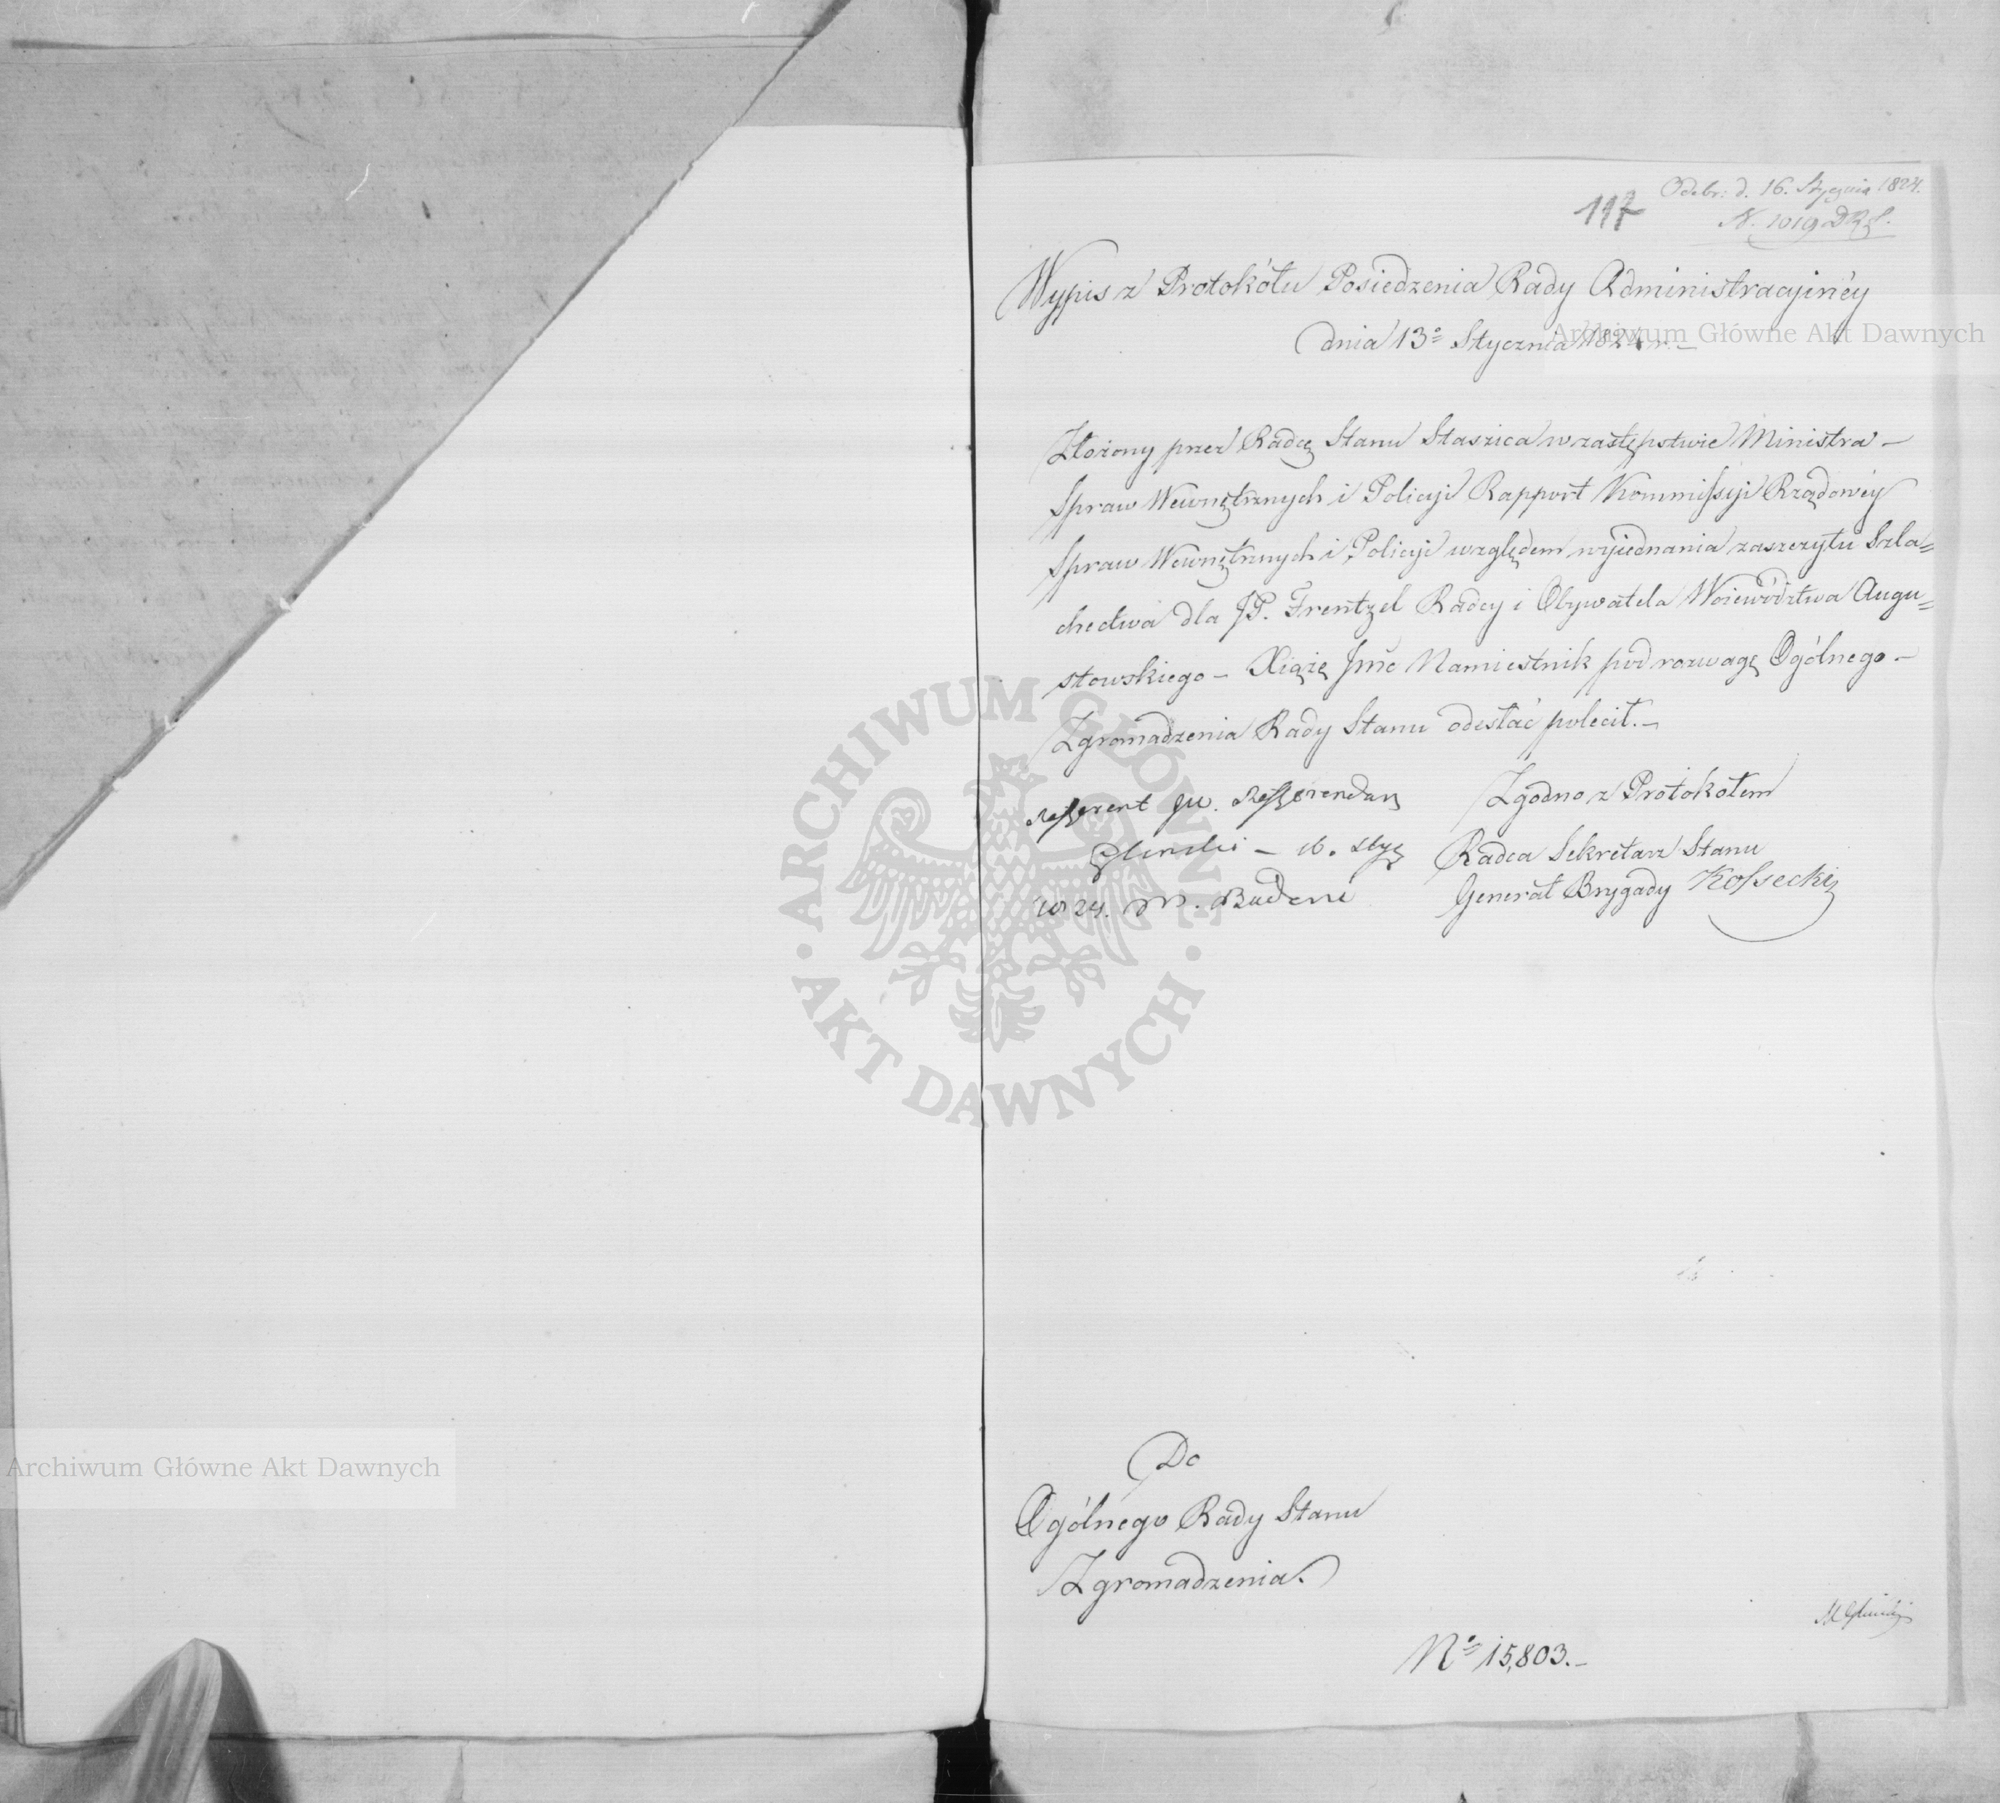 Odebr: d. 16. Stycznia 1824.
117
N. 1019 D.R.S.
Wypis z Protokółu Posiedzenia Rady Administracyinéy
dnia 13º Stycznia 1824 r. –
Archiwum Główne Akt Dawnych
Złożony przez Radcę Stanu Staszica w zastępstwie Ministra –
Spraw Wewnętrznych i Policyi Rapport Kommissyi Rządowéy
Spraw Wewnętrznych i Policyi względem wyiednania zaszczytu Szla=
chectwa dla JP. Frentzel Radcy i Obywatela Woiewództwa Augu=
stowskiego – Xiążę Jmć Namiestnik pod rozwagę Ogólnego –
Zgromadzenia Rady Stanu odesłać polecił. –
Referent JW. Referendarz
Gliński – 16. Stycz
1824. M. Badeni
Zgodno z Protokołem
Radca Sekretarz Stanu
Generał Brygady Kossecki
ARCHIWUM GŁÓWNE
AKT DAWNYCH
Do
Ogólnego Rady Stanu
Zgromadzenia.
Archiwum Główne Akt Dawnych
M Gliński
Nº 15,803. –